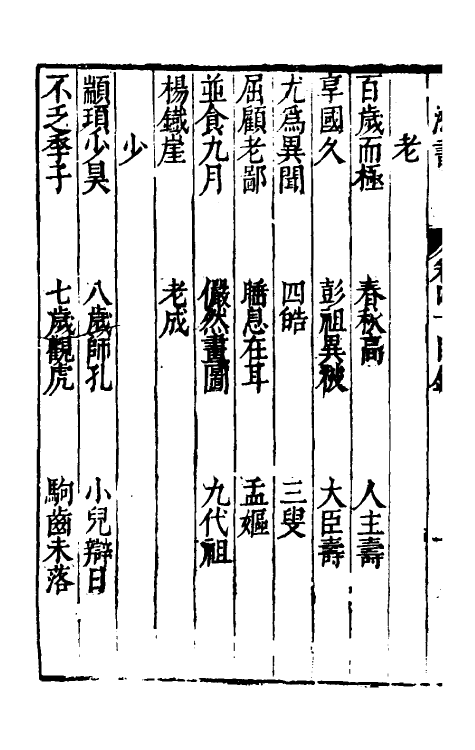 老
百歲而極　春秋高　人主壽
享國久　彭祖異秧　大臣壽
尤爲異聞　四皓　三叟
屈顧老鄙　睡息在耳　孟嫗
並食九月　儼然畫圖　九代祖
楊鐵崖　老成
少
顓頊少昊　八歲師孔　小兒辯日
不乏季子　七歲觀虎　駒齒未落